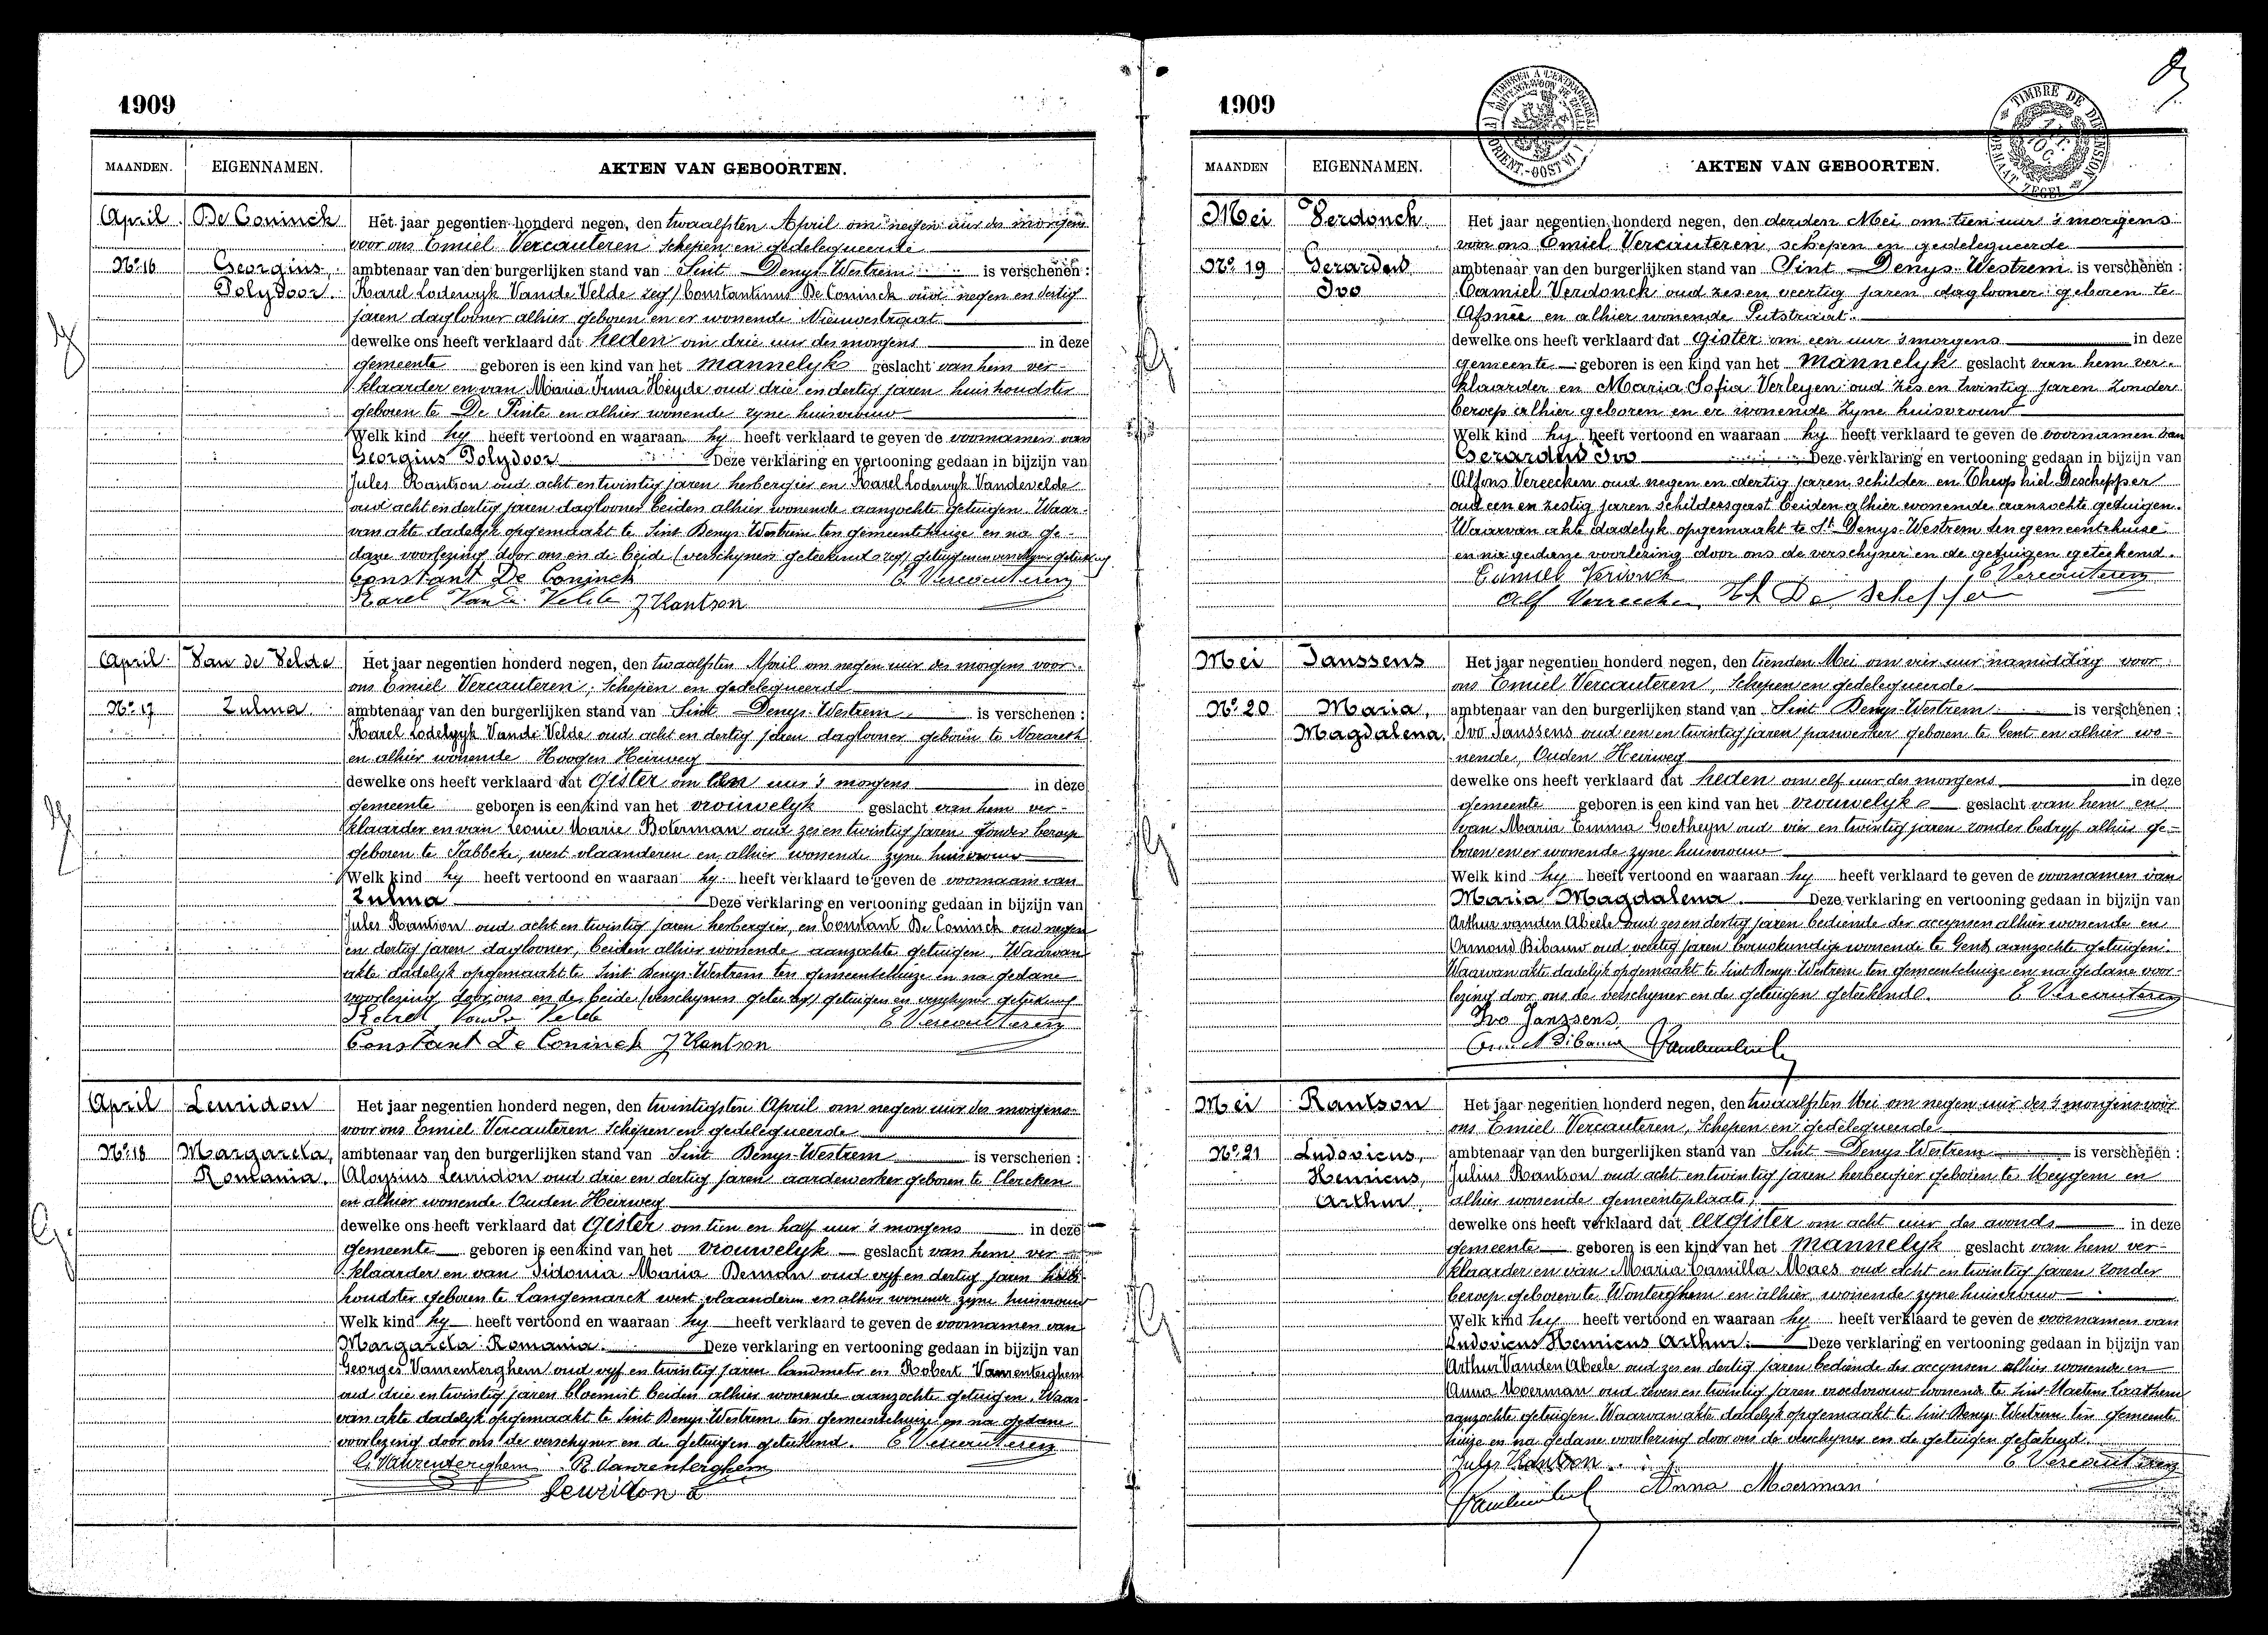 1909
MAANDEN. EIGENNAMEN. AKTEN VAN GEBOORTEN.
April De Coninck Het jaar negentien honderd negen, den twaalfsten April om negen uur des morgens
voor ons Emiel Vercauteren, Schepen en gedelegueerde
No 16 Georgius, ambtenaar van den burgerlijken stand van Sint Denys-Westrem is verschenen :
Polydoor. Karel Lodewyk Vande Velde zegt Constantinus De Coninck oud negen en dertig
jaren daglooner alhier geboren en er wonende Nieuwestraat
dewelke ons heeft verklaard dat heden om drie uur des morgens in deze
gemeente geboren is een kind van het mannelyk geslacht van hem ver-
klaarder en van Maria Irma Heyde oud drie en dertig jaren huishoudster
geboren te De Pinte en alhier wonende zyne huisvrouw
Welk kind hy heeft vertoond en waaraan hy heeft verklaard te geven de voornamen van
Georgius Polydoor Deze verklaring en vertooning gedaan in bijzijn van
Jules Rantson oud acht en twintig jaren herbergier en Karel Lodewyk Vandevelde
oud acht en dertig jaren daglooner beiden alhier wonende aanzochte getuigen. Waar-
van akte dadelyk opgemaakt te Sint Denys-Westrem ten gemeentehuize en na ge-
dane voorlezing door ons en de beide (verschynen geteekend zegt) getuigen en verschyner geteekend
Constant De Coninck E Vercauteren
Karel Vande Velde J Rantson
April Van de Velde Het jaar negentien honderd negen, den twaalfsten April om negen uur des morgens voor
ons Emiel Vercauteren, Schepen en gedelegueerde
No 17 Zulma ambtenaar van den burgerlijken stand van Sint Denys-Westrem is verschenen :
Karel Lodewyk Vande Velde oud acht en dertig jaren daglooner geboren te Nazareth
en alhier wonende Hoogen Heirweg
dewelke ons heeft verklaard dat gister om uur 's morgens in deze
gemeente geboren is een kind van het vrouwelyk geslacht van hem ver-
klaarder en van Leonie Marie Boterman oud zes en twintig jaren zonder beroep
geboren te Jabbeke, west-vlaanderen en alhier wonende zyne huisvrouw
Welk kind hy heeft vertoond en waaraan hy heeft verklaard te geven de voornaam van
Zulma Deze verklaring en vertooning gedaan in bijzijn van
Jules Rantson oud acht en twintig jaren herbergier, en Constant De Coninck oud negen
en dertig jaren daglooner, beiden alhier wonende aanzochte getuigen. Waarvan
akte dadelyk opgemaakt te Sint Denys-Westrem ten gemeentehuize en na gedane
voorlezing door ons en de beide (verschyners getee zegt) getuigen en verschyner geteekend
Karel Vande Velde E Vercauteren
Constant De Coninck J Rantson
April Leuridon Het jaar negentien honderd negen, den twintigsten April om negen uur des morgens
voor ons Emiel Vercauteren Schepen en gedelegueerde
No 18 Margareta, ambtenaar van den burgerlijken stand van Sint Denys-Westrem is verschenen :
Romania. Aloysius Leuridon oud drie en dertig jaren aardewerker geboren te Clercken
en alhier wonende Ouden Heirweg
dewelke ons heeft verklaard dat Gister om tien en half uur 's morgens in deze
gemeente geboren is een kind van het vrouwelyk geslacht van hem ver-
klaarder en van Sidonia Maria Beman oud vyf en dertig jaren huis
houdster geboren te Langemarck west-vlaanderen en alhier wonende zyne huisvrouw
Welk kind hy heeft vertoond en waaraan hy heeft verklaard te geven de voornamen van
Margareta Romania. Deze verklaring en vertooning gedaan in bijzijn van
Georges Vanrenterghem oud vyf en twintig jaren landmeter en Robert Vanrenterghem
oud drie en twintig jaren bloemist beiden alhier wonende aanzochte getuigen. Waar-
van akte dadelyk opgemaakt te Sint Denys-Westrem ten gemeentehuize en na gedane
voorlezing door ons de verschyner en de getuigen geteekend. E Vercauteren
G. Vanrenterghem R. Vanrenterghem
Leuridon a
1909
MAANDEN EIGENNAMEN. AKTEN VAN GEBOORTEN.
Mei Verdonck Het jaar negentien honderd negen, den derden Mei om tien uur 's morgens
voor ons Emiel Vercauteren, schepen en gedelegueerde
No 19 Gerardus ambtenaar van den burgerlijken stand van Sint Denys-Westrem is verschenen :
Ivo Camiel Verdonck oud zes en veertig jaren daglooner geboren te
Afsnee en alhier wonende Putstraat.
dewelke ons heeft verklaard dat Gister om een uur 's morgens in deze
gemeente geboren is een kind van het mannelyk geslacht van hem ver-
klaarder en Maria Sofia Verleyen oud zes en twintig jaren zonder
beroep alhier geboren en er wonende zyne huisvrouw
Welk kind hy heeft vertoond en waaraan hy heeft verklaard te geven de voornamen van
Gerardus Ivo Deze verklaring en vertooning gedaan in bijzijn van
Alfons Vereecken oud negen en dertig jaren, schilder en Theophiel Deschepper
oud een en zestig jaren schildersgast beiden alhier wonende aanzochte getuigen.
Waarvan akte dadelyk opgemaakt te St Denys-Westrem ten gemeentehuise
en na gedane voorlezing door ons de verschyner en de getuigen geteekend.
Camiel Verdonck E Vercauteren
Alf Vereecken Th De Schepper
Mei Janssens Het jaar negentien honderd negen, den tienden Mei om vier uur namiddag voor
ons Emiel Vercauteren, Schepen en gedelegueerde
No 20 Maria, ambtenaar van den burgerlijken stand van Sint Denys-Westrem is verschenen :
Magdalena. Ivo Janssens oud een en twintig jaren paswerker geboren te Gent en alhier wo-
nende, Ouden Heirweg
dewelke ons heeft verklaard dat heden om elf uur des morgens in deze
gemeente geboren is een kind van het vrouwelyk geslacht van hem en
van Maria Emma Goetheyn oud vier en twintig jaren zonder bedryf alhier ge-
boren en er wonende zyne huisvrouw
Welk kind hy heeft vertoond en waaraan hy heeft verklaard te geven de voornamen van
Maria Magdalena. Deze verklaring en vertooning gedaan in bijzijn van
Arthur vanden Abeele oud zes en dertig jaren bediende der accynsen alhier wonende en
Armond Bibauw oud veertig jaren bouwkundige wonende te Gent, aanzochte getuigen.
Waarvan akte dadelyk opgemaakt te Sint Denys-Westrem ten gemeentehuize en na gedane voor-
lezing door ons de verschyner en de getuigen geteekend. E Vercauteren
Ivo Janssens
Mei Rantson Het jaar negentien honderd negen, den twaalfsten Mei om negen uur des 's morgens voor
ons Emiel Vercauteren, Schepen en gedelegueerde
No 21 Ludovicus, ambtenaar van den burgerlijken stand van Sint Denys-Westrem is verschenen :
Henricus, Julius Rantson oud acht en twintig jaren herbergier geboren te Meygem en
Arthur. alhier wonende gemeenteplaats.
dewelke ons heeft verklaard dat eergister om acht uur des avonds in deze
gemeente geboren is een kind van het mannelyk geslacht van hem ver-
klaarder en van Maria Camilla Maes oud acht en twintig jaren zonder
beroep geboren te Wonterghem en alhier wonende zyne huisvrouw
Welk kind hy heeft vertoond en waaraan hy heeft verklaard te geven de voornamen van
Ludovicus Henricus Arthur. Deze verklaring en vertooning gedaan in bijzijn van
Arthur Vanden Abeele oud zes en dertig jaren bediende der accynsen alhier wonende en
Anna Moerman oud zeven en twintig jaren vroedvrouw wonende te Sint-Martens Laathem
aanzochte getuigen Waarvan akte dadelyk opgemaakt te Sint Denys-Westrem ten gemeente
huize en na gedane voorlezing door ons de verschyner en de getuigen geteekend.
Jules Rantson E Vercauteren
Anna Moerman